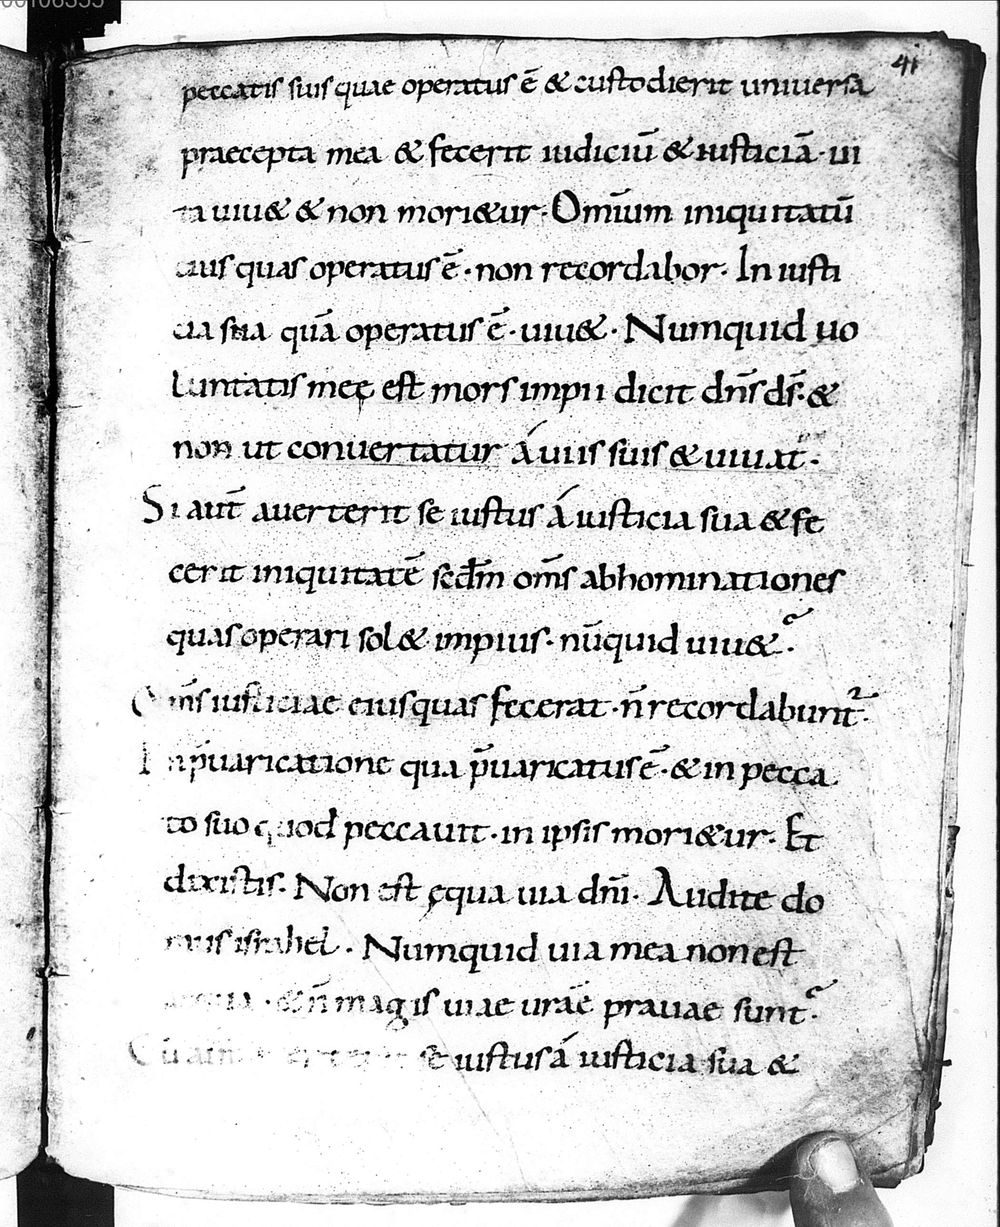 00106355
41
peccatis suis quae operatus ē & custodierit uniuersa
praecepta mea & fecerit iudiciū & iusticiā · ui
ta uiu& & non mori&ur · Omīum iniquitatū
eius quas operatus ē · non recordabor · In iusti
cia sua quā operatus ē · uiu& · Numquid uo
luntatis meę est mors impii dicit dn̄s ds̄ · &
non ut conuertatur á uiis suis & uiuat ·
Si aut̄ auerterit se iustus á iusticia sua & fe
cerit iniquitatē secdm̄ om̄s abhominationes
quas operari sol& impius · nūquid uiu& ?
Om̄s iusticiae eius quas fecerat · n̄ recordabunt᷑ ·
In p̄uaricatione qua p̄uaricatus ē · & in pecca
to suo quod peccauit · in ipsis mori&ur · Et
dixistis · Non est ęqua uia dn̄i · Audite do
mus israhel · Numquid uia mea non est
· & n̄ magis uiae urāe prauae sunt ?
Cū se iustus á iusticia sua &